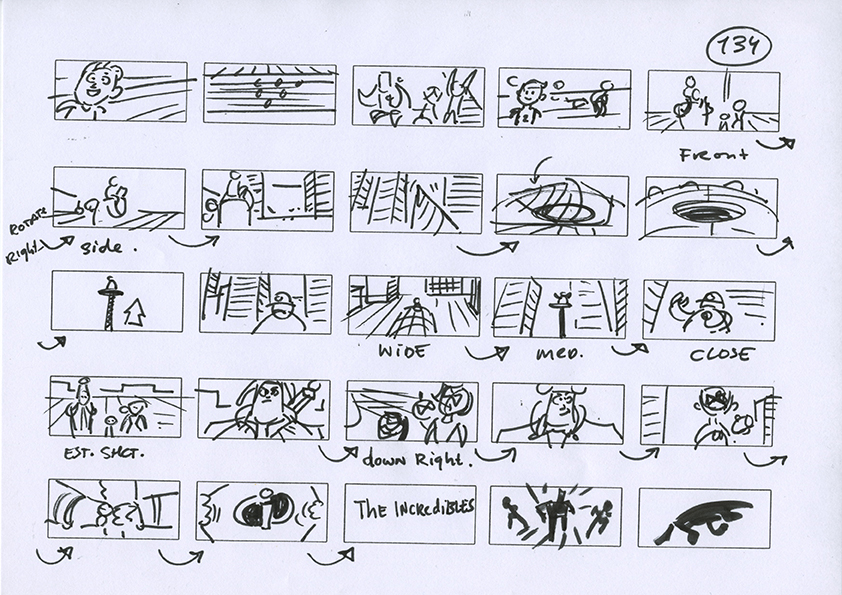 134
Front
ROTATE
Right.
Side.
WIDE
MED.
CLOSE
EST. SHOT.
down Right.
The INCREdIBLES